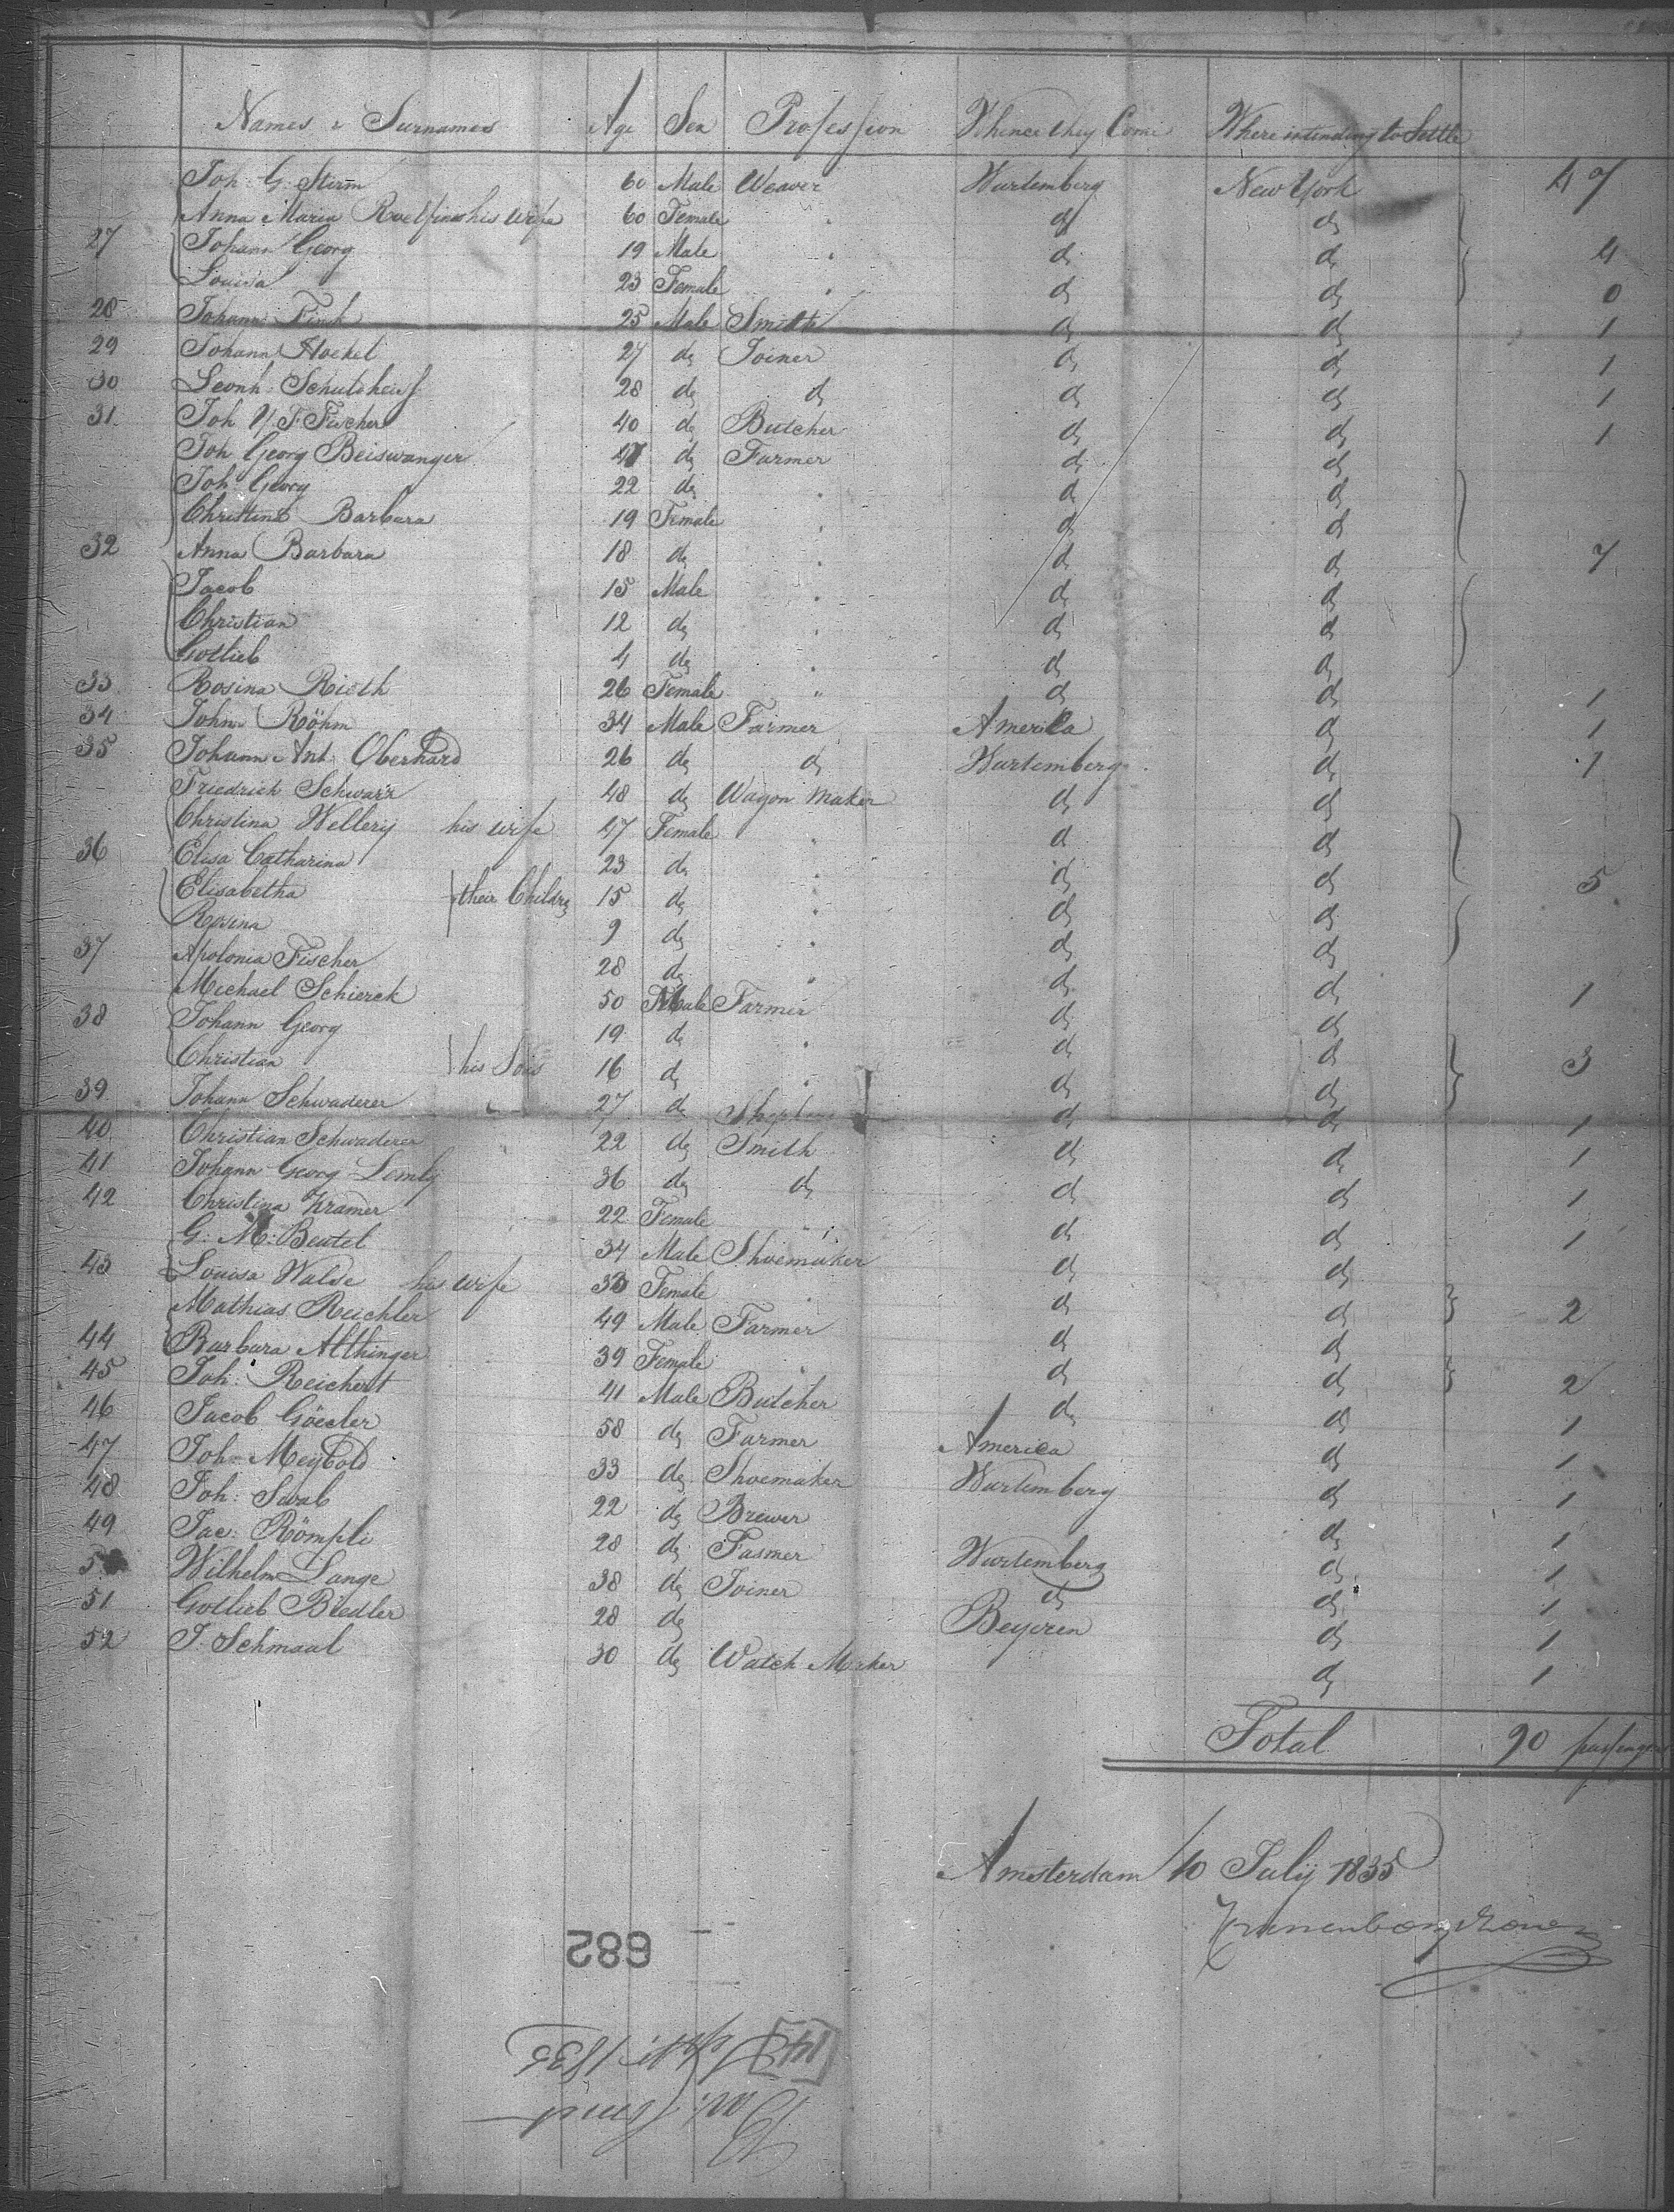 Names & Surnames Age Sex Profession Whence they Come Where intending to Settle
Joh: G: Sturm 60 Male Weaver Wurtemberg New York 47
Anna Maria his wife 60 Female " do do
27 Johann Georg 19 Male " do do 4
Louisa 23 Female " do do 0
28 Johann Fink 25 Male Smith do do 1
29 Johann Hockel 27 do Joiner do do 1
30 Leonh: Schultheiss 28 do do do do 1
31 Joh F. Fischer 40 do Butcher do do 1
Joh Georg Beiswanger 47 do Farmer do do
Joh: Georg 22 do " do do
Christina Barbara 19 Female " do do
32 Anna Barbara 18 do " do do 7
Jacob 15 Male " do do
Christian 12 do " do do
Gotlieb 4 do " do do
33 Rosina Rieth 26 Female " do do 1
34 John Röhm 34 Male Farmer America do 1
35 Johann Ant: Oberhard 26 do do Wurtemberg do 1
Friedrich Schwarz 48 do Wagon Maker do do
Christina Wellery his wife 47 Female " do do
36 Elisa Catharina 23 do " do do 5
Elisabetha their Childrn 15 do " do do
Rosina 9 do " do do
37 Apolonia Fischer 28 do " do do 1
Michael Schierck 50 Male Farmer do do
38 Johann Georg 19 do " do do 3
Christian his Sons 16 do " do do
39 Johann Schwaderer 27 do do do 1
40 Christian Schwaderer 22 do Smith do do 1
41 Johann Georg Lemly 36 do do do do 1
42 Christina Kramer 22 Female " do do 1
G: M: Beutel 34 Male Shoemaker do do
43 Louisa Walde his wife 33 Female " do do 2
Mathias Reichler 49 Male Farmer do do
44 Barbara Althinger 39 Female " do do 2
45 Joh: Reichert 41 Male Butcher do do 1
46 Jacob Göeler 58 do Farmer America do 1
47 Joh: Meybold 33 do Shoemaker Wurtemberg do 1
48 Joh: Swab 22 do Brewer do 1
49 Jac: Römpli 28 do Farmer Wurtemberg do 1
5 Wilhelm Lange 38 do Joiner do do 1
51 Gotlieb Biedler 28 do Beyeren do 1
52 J. Schmaal 30 do Watch Maker do 1
Total 90 passengers
Amsterdam 10 July 1835
682
14
1835